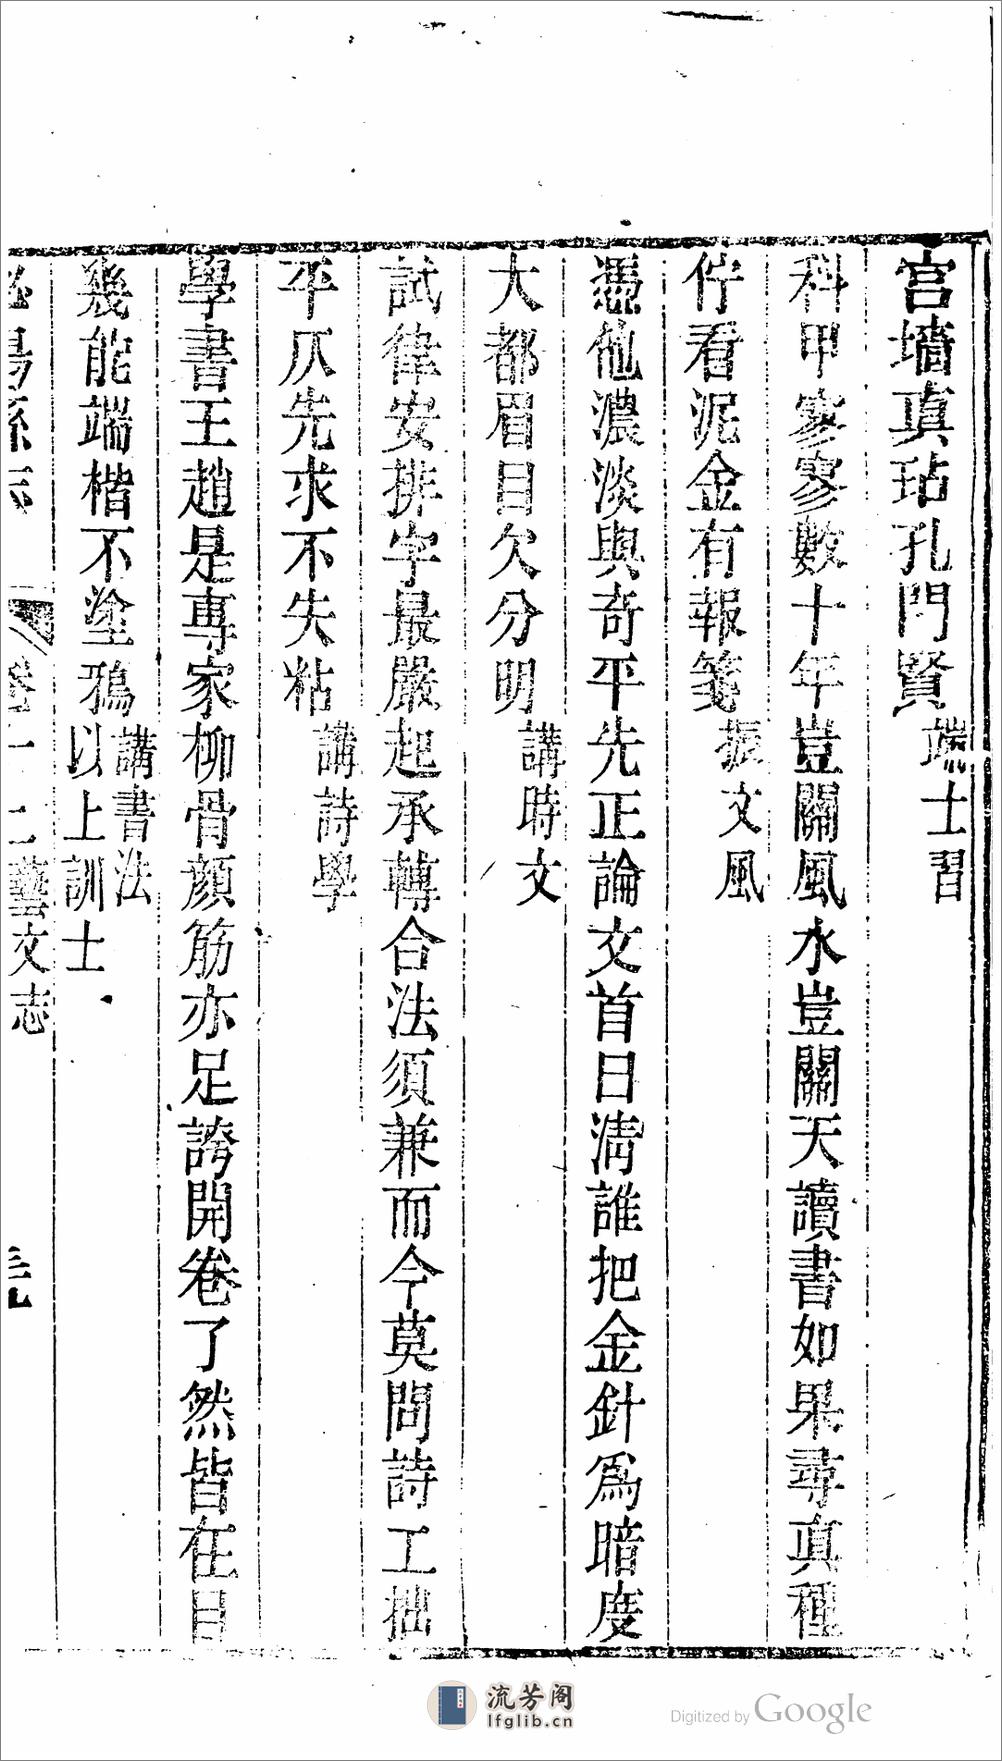 宫墻真玷孔門賢端士習
科甲寥寥數十年豈關風水豈關天讀書如果尋真種
佇看泥金有報箋振文風
憑他濃淡與奇平先正論文首曰淸誰把金針爲暗度
大都眉目欠分明講時文
試律安排字最嚴起承轉合法須兼而今莫問詩工拙
平仄先求不失粘講詩學
學書王趙是專家柳骨顔筋亦足誇開卷了然皆在目
幾能端楷不塗鴉講書法
以上訓士
陽縣志 卷十二藝文志 三九
流芳阁
lfglib.cn
Digitized by Google